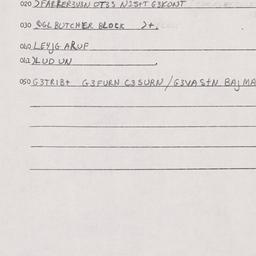 020 >FARRER3U3N OT3S NIS+T G3KONT
030 SGL BUTCHER BLOCK >+.
040 LEYJG ARUF
041 XLUD UN
050 G3TRIB+ G3FURN C3SURN / G3VAS+N BAJMA